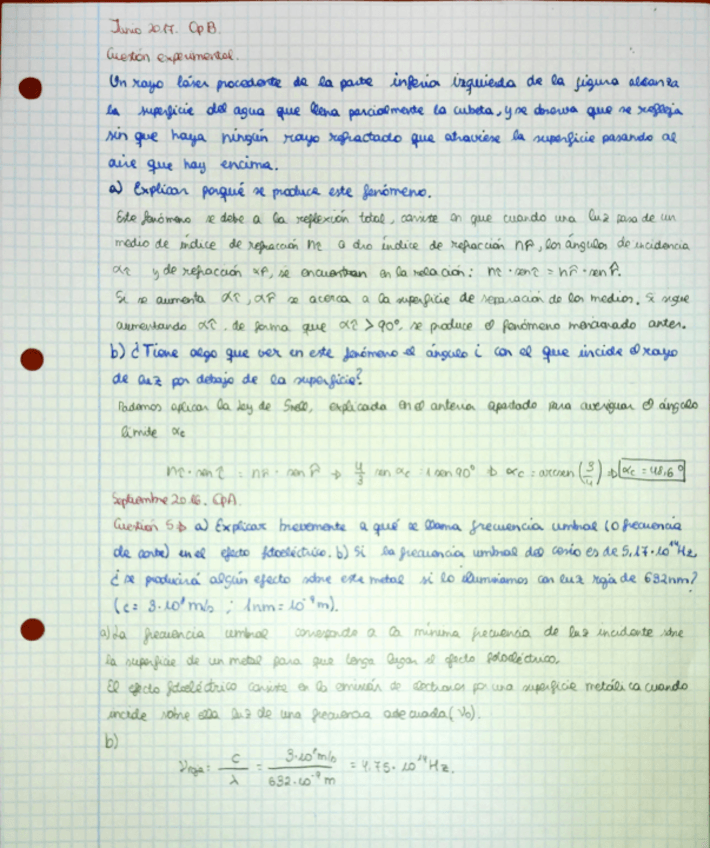 Junio 2017. Op B.
Cuestión experimental.
Un rayo láser procedente de la parte inferior izquierda de la figura alcanza
la superficie del agua que llena parcialmente la cubeta, y se observa que se refleja
sin que haya ningún rayo refractado que atraviese la superficie pasando al
aire que hay encima.
a) Explicar porqué se produce este fenómeno.
Este fenómeno se debe a la reflexión total, consiste en que cuando una luz pasa de un
medio de índice de refracción
y de refracción, se encuentran en la relación:
Si se aumenta se acerca a la superficie de separación de los medios. Si sigue
aumentando de forma que > 90°, se produce el fenómeno mencionado antes.
b) ¿Tiene algo que ver en este fenómeno el ángulo i con el que incide el rayo
de luz por debajo de la superficie?
Podemos aplicar la Ley de Snell, explicada en el anterior apartado para averiguar el ángulo
límite αc
4/3 sen αc = 1 sen 90° ⇒ αc = arcsen (3/4) ⇒ αc = 48,6°
Septiembre 2016. OpA.
Cuestión 5⇒ a) Explicar brevemente a qué se llama frecuencia umbral (o frecuencia
de corte) en el efecto fotoeléctrico. b) Si la frecuencia umbral del cesio es de 5,17·10¹⁴Hz,
¿se producirá algún efecto sobre este metal si lo iluminamos con luz roja de 632nm?
(c = 3·10⁸ m/s ; 1nm = 10⁻⁹ m).
a) La frecuencia umbral corresponde a la mínima frecuencia de luz incidente sobre
la superficie de un metal para que tenga lugar el efecto fotoeléctrico.
El efecto fotoeléctrico consiste en la emisión de electrones por una superficie metálica cuando
incide sobre ella luz de una frecuencia adecuada (ν₀).
b)
ν roja = c/λ = 3·10⁸ m/s / 632·10⁻⁹ m = 4.75·10¹⁴ Hz.